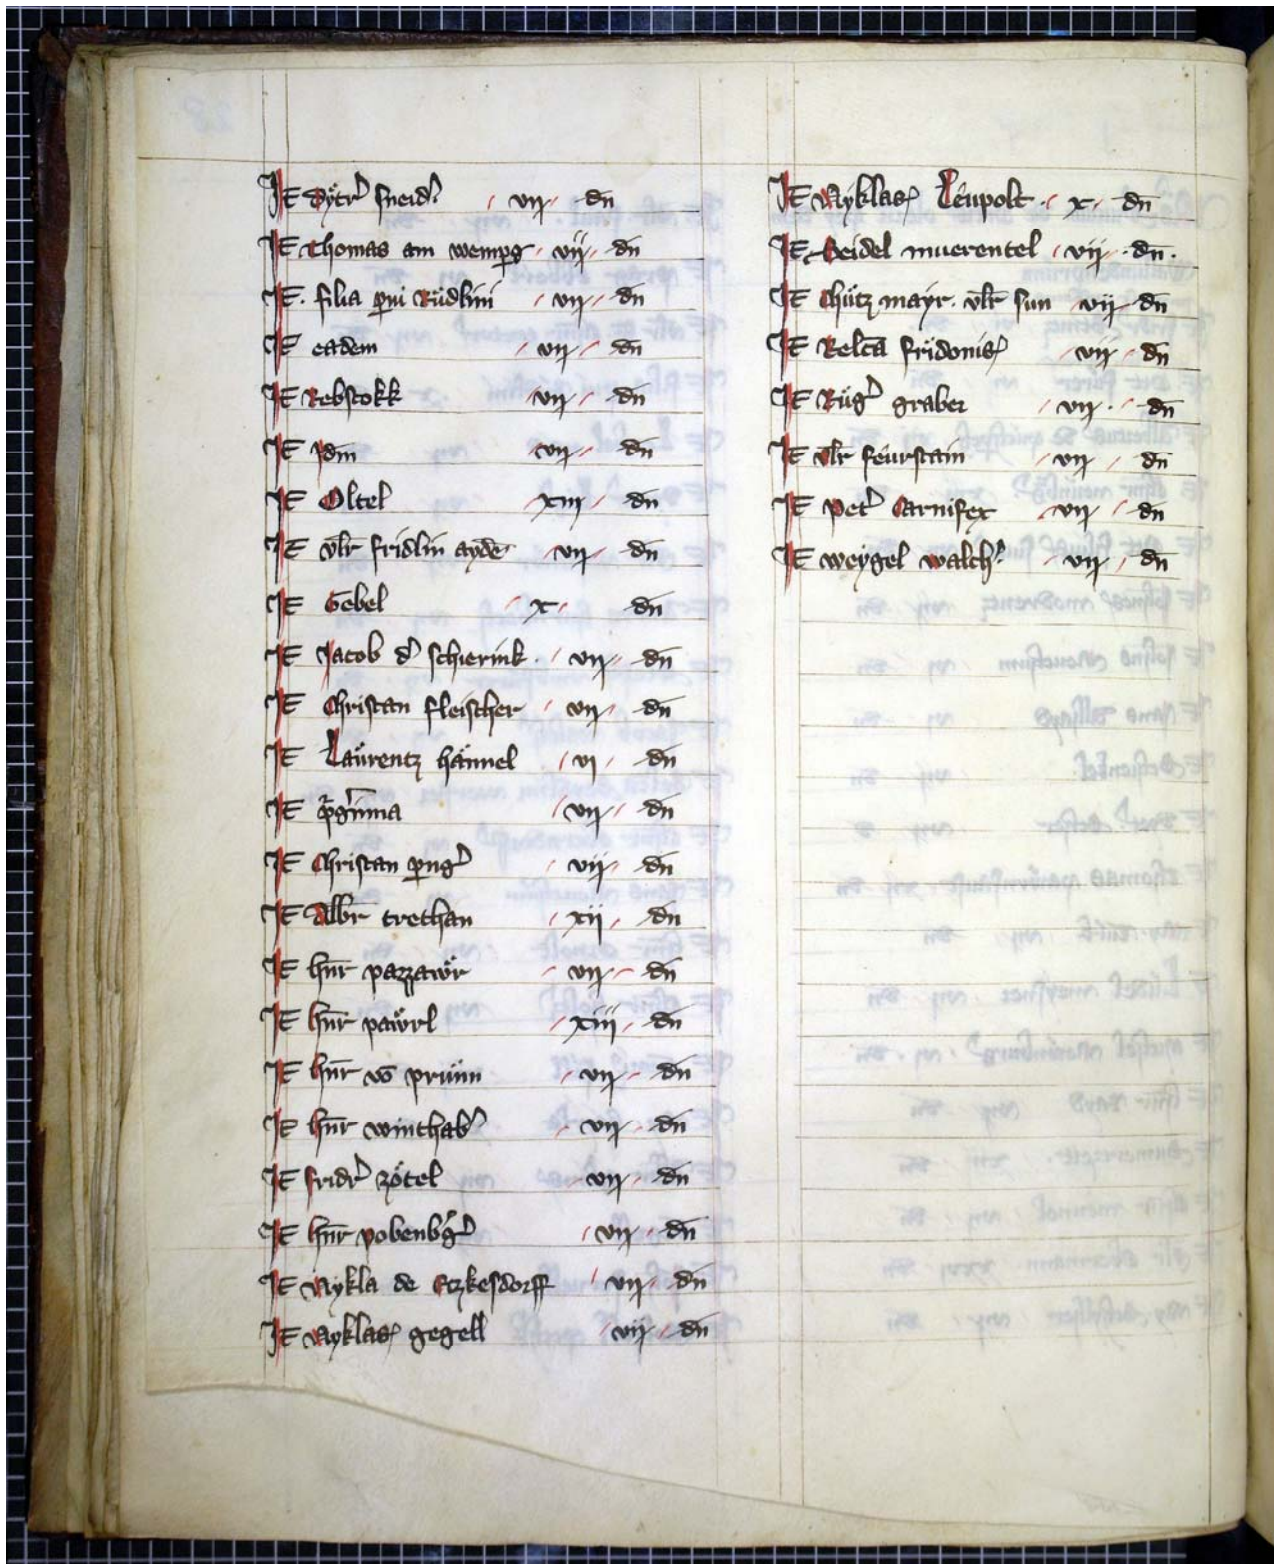 It Dÿtr̄ sneid̄
It Thomas am wempg vij dn̄
It filia p̄ni Rüdlini vij dn̄
It eadem vij dn̄
It Rebstokk vij dn̄
It Idm̄ vij dn̄
It Oltel xiij dn̄
It Ulr̄ fridlin aydē vij dn̄
It Gebel x dn̄
It Jacob d̄ schierink vij dn̄
It Christan fleischer vij dn̄
It Laürentz hännel vj dn̄
It vij dn̄
It Christan p̄nḡ vij dn̄
It Albr̄ trethan xij dn̄
It hnr̄ pazzawr̄ vij dn̄
It hnr̄ pawrl xiij dn̄
It hnr̄ vō prünn vij dn̄
It hnr̄ winthab̄ vij dn̄
It fridr̄ zötel vij dn̄
It hnr̄ pobenb̄ḡ vij dn̄
It Nykla de Eczkesdorff vij dn̄
It Nyklas gegell vij dn̄
It Nyklas Leupolt x dn̄
It Seidel muerentel vij dn̄
It Chütz mayr ulr̄ sun vij dn̄
It Relc̄a fridonis vij dn̄
It Rüḡ graber vij dn̄
It Ulr̄ feurstain vij dn̄
It pet̄ Carnifex vij dn̄
It weygel walch̄ vij dn̄